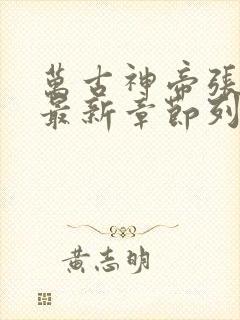 萬古神帝張
最新章節列
黃志明